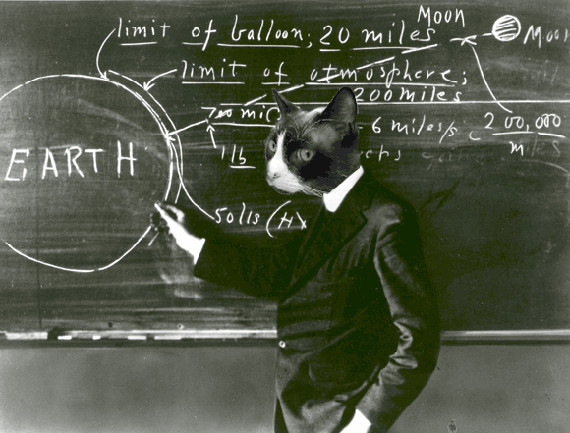 Moon
limit of balloon; 20 miles
Moon
limit of atmosphere;
200 miles
700 mi
6 miles/s
200,000
1 lb
EARTH
50 lbs (H